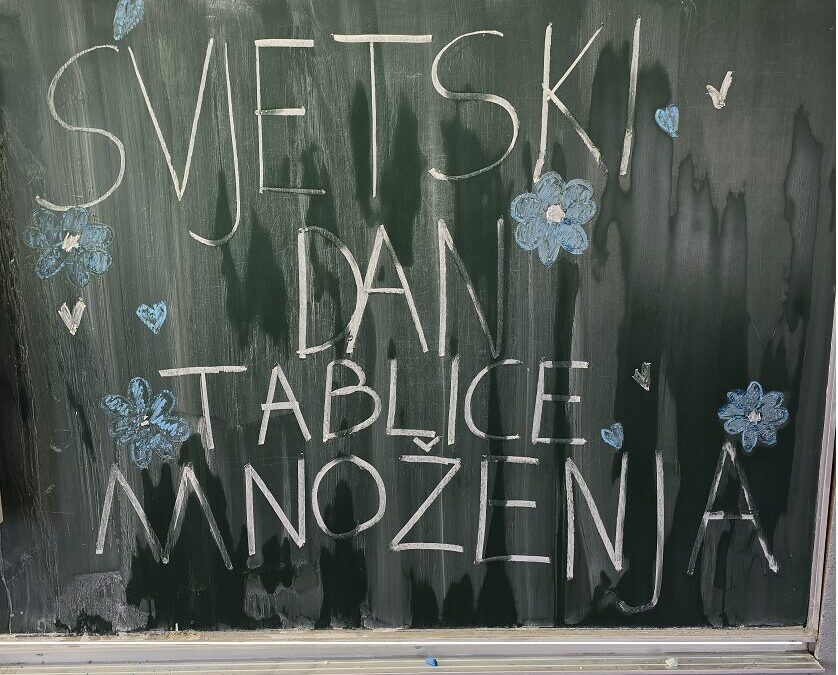 SVJETSKI
DAN
TABLICE
MNOŽENJA